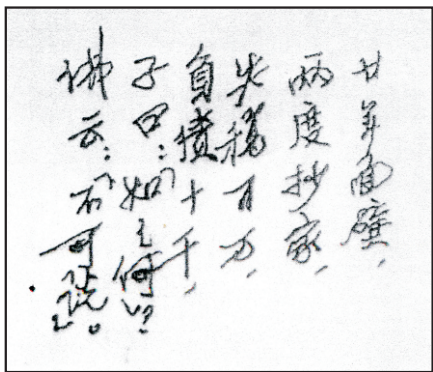 廿年面壁,
两度抄家,
失稿百万,
負債十千,
子曰:“如之何?”
云:“不可说。”